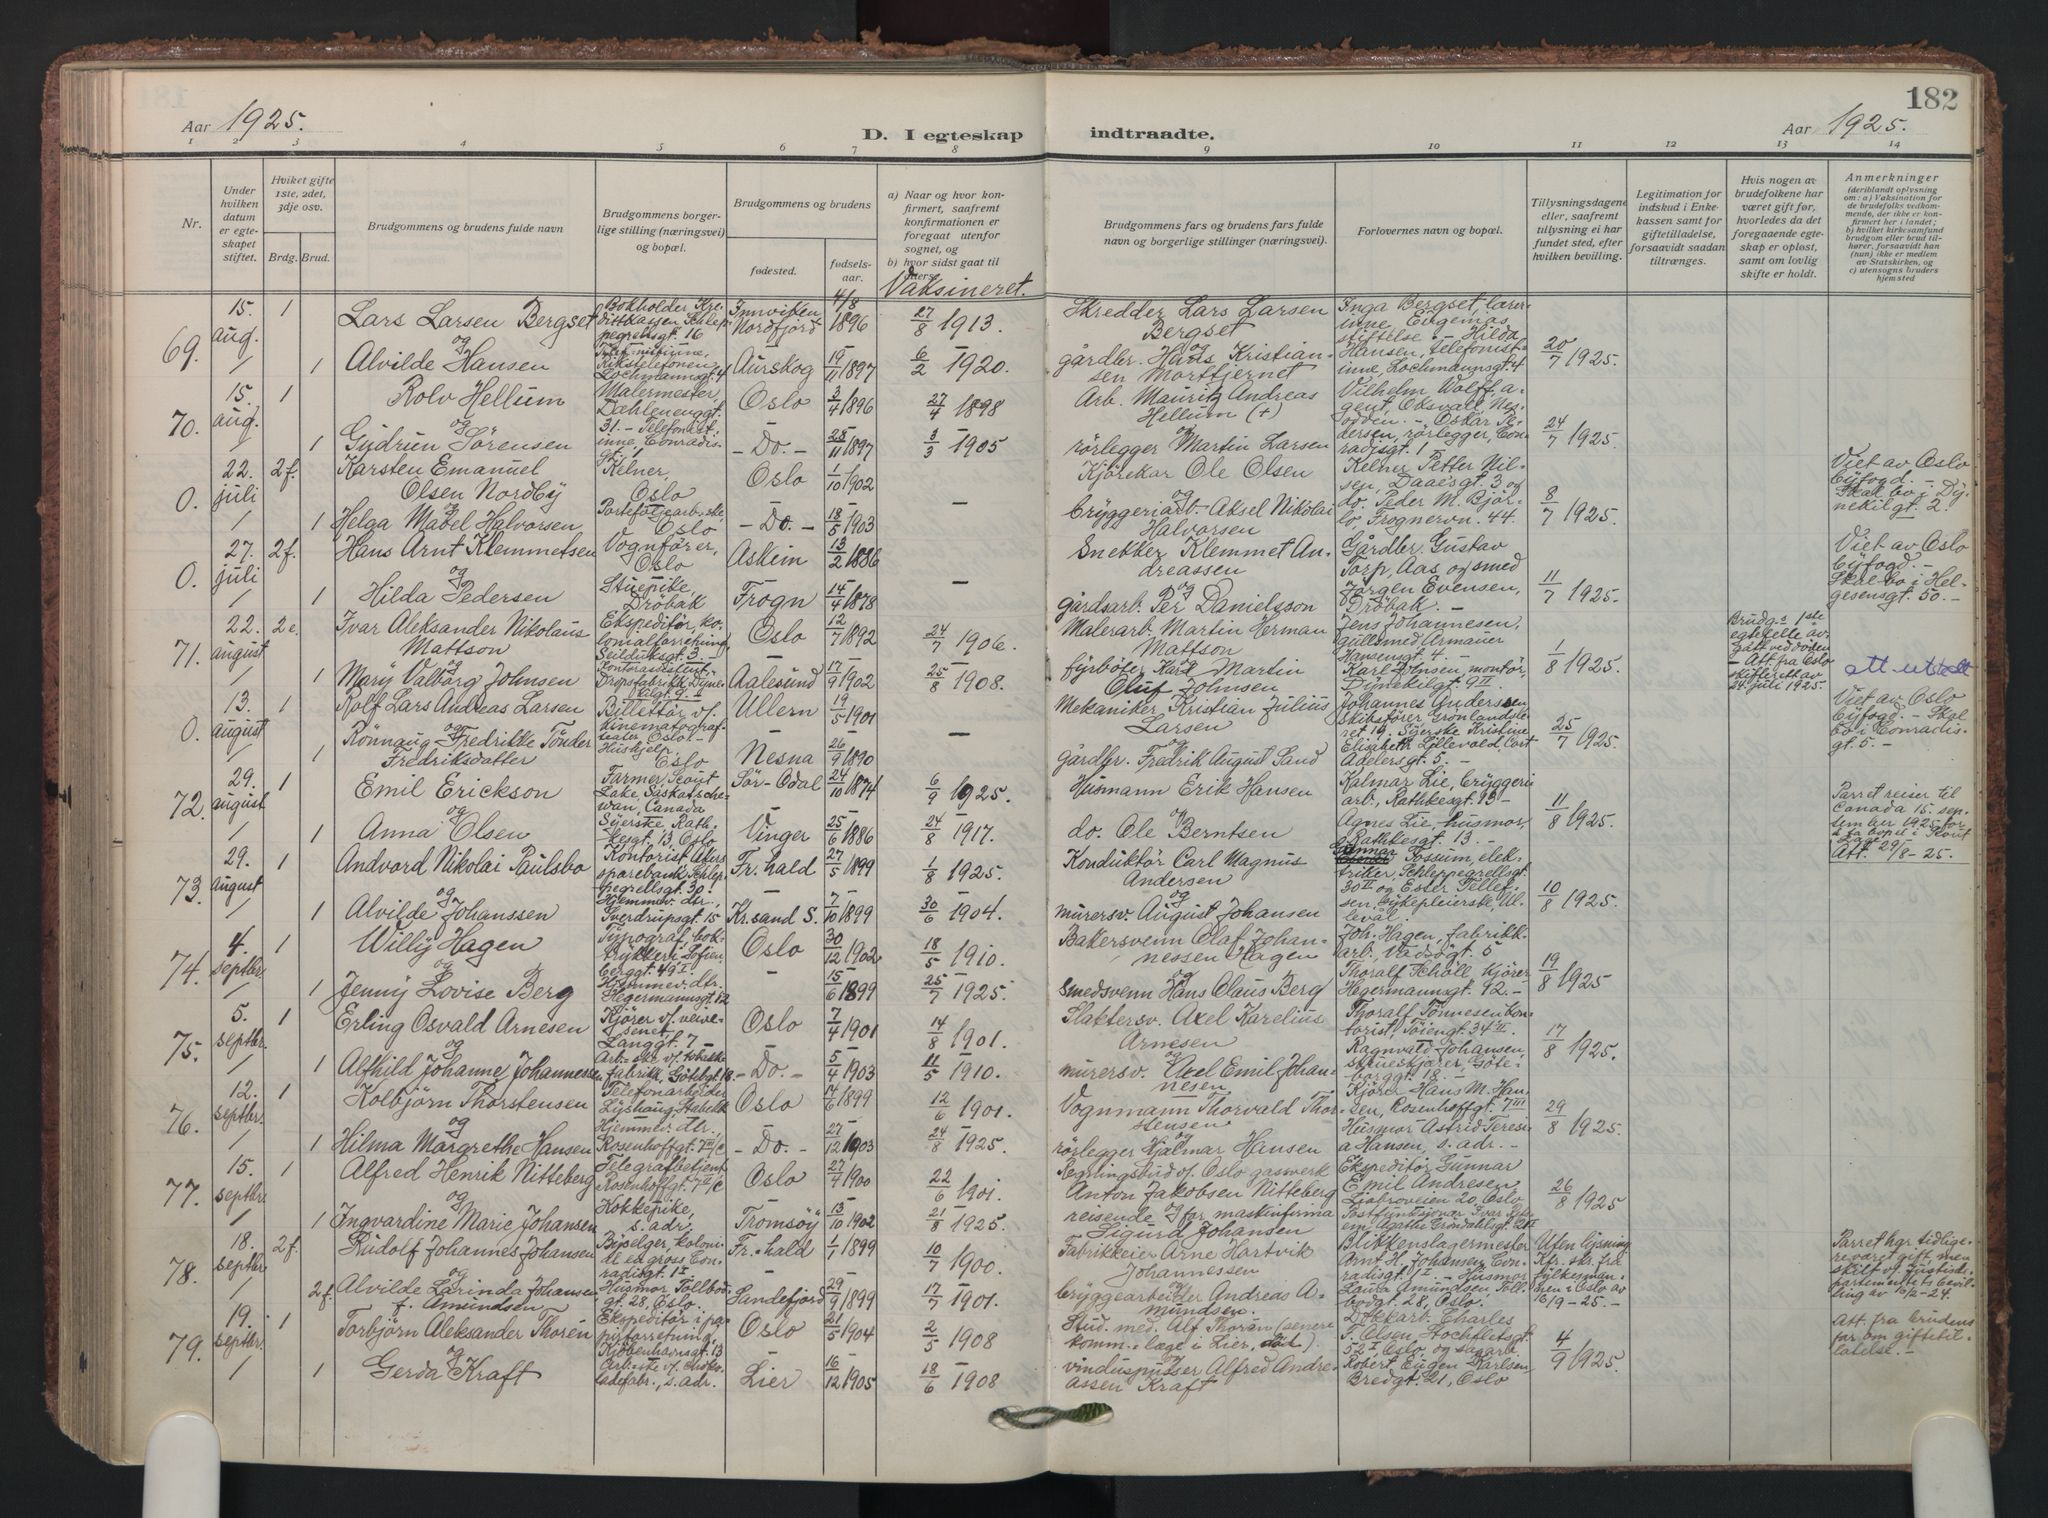 182
Aar 1925.
D. I egteskap indtraadte.
Aar 1925.
1 2 3 4 5 6 7 8 9 10 11 12 13 14
Nr.
Under hvilken datum er egteskapet stiftet.
Hviket gifte 1ste, 2det, 3dje osv.
Brdg. Brud.
Brudgommens og brudens fulde navn
Brudgommens borgerlige stilling (næringsvei) og bopæl.
Brudgommens og brudens
fødested.
fødselsaar.
a) Naar og hvor konfirmert, saafremt konfirmationen er foregaat utenfor sognet, og
b) hvor sidst gaat til alters.
Vaksineret.
Brudgommens fars og brudens fars fulde navn og borgerlige stillinger (næringsvei).
Forlovernes navn og bopæl.
Tillysningsdagene eller, saafremt tillysning ei har fundet sted, efter hvilken bevilling.
Legitimation for indskud i Enkekassen samt for giftetilladelse, forsaavidt saadan tiltrænges.
Hvis nogen av brudefolkene har været gift før, hvorledes da det foregaaende egteskap er opløst, samt om lovlig skifte er holdt.
Anmerkninger
(deriblandt oplysning om: a) Vaksination for de brudefolks vedkommende, der ikke er konfirmert her i landet; b) hvilket kirkesamfund brudgom eller brud tilhører, forsaavidt han (hun) ikke er medlem av Statskirken, og c) utensogns bruders hjemsted
69. 15. aug. 1 Lars Larsen Bergset Innviken Nordfjord 4/8 1896 27/8 1913 Skredder Lars Larsen Bergset
og
1 Alvilde Hansen Rikstelefonen, Lochmannsgt. 4 Aurskog 19/11 1897 6/2 1920. gårdbr. Hans Kristiansen 20/7 1925.
Inga Bergset, lærerinne, Eugenias stiftelse. - Hilda Hansen, telefonistinne, Lochmannsgt. 4
70. 15. aug. 1 Rolv Hellum Malermester, Dahlenenggt. 31. - Oslo 3/4 1896 27/4 1898 Arb. Mauritz Andreas Hellum (+)
og
1 Gudrun Sörensen Telefonistinne, Conradisgt. 1 - Do. - 28/11 1897 3/3 1905 rörlegger Martin Larsen 24/7 1925.
Vilhelm Wolff, agent, Oksvall, Nesodden. - Oskar Pedersen, rörlegger, Conradisgt. 1
0. 22. juli 2f. Karsten Emanuel Olsen Nordby Kelner, Oslo Oslo 1/10 1902 - Kjörekar Ole Olsen
og
1 Helga Mabel Halvorsen Oslo - Do. - 18/5 1903 bryggeriarb. Aksel Nikolai Halvorsen 8/7 1925.
Kelner Petter Nilsen, Daaesgt. 3 og do. Peder M. Bjørlo, Frognervn. 44.
Viet av Oslo byfogd. - Skal bo i Dynekilgt. 2.
0. 27. juli 2f. Hans Arnt Klemmetsen Vognförer, Oslo Askim 13/2 1886 - Snekker Klemmet Andreassen
og
1 Hilda Pedersen Stuepike, Dröbak Frogn 14/4 1878 gårdsarb. Per Danielsson 11/7 1925.
Gårdbr. Gustav Torp, Aas og smed Jörgen Evensen, Dröbak. -
Viet av Oslo byfogd. - Skal bo i Helgesensgt. 50. -
71. 22. august 2e. Ivar Aleksander Nikolaus Mattson Ekspeditör, kolonialforretning, Seilduksgt. 3. - Oslo 12/7 1892 24/7 1906. Malerarb. Martin Herman Mattson
og
1 Mary Valborg Johnsen Aalesund 17/9 1902 25/8 1908. fyrböter Karl Martin Oluf Johnsen 1/8 1925.
Jens Johannesen, gullsmed Armauer Hansensgt. 4 - Karl Johnsen, montör, Dynekilgt. 9 II
Brudg.s 1ste egtefelle avgått ved döden - Att. fra Oslo skifterett av 24. juli 1925.
att. utstedt
0. 13. august 1 Rolf Lars Andreas Larsen Billettör v. kinematografteater Oslo Ullern 19/5 1901 - Mekaniker Kristian Julius Larsen
og
1 Rönnaug Fredrikke Tönder Fredriksdatter Hushjelp, Oslo Nesna 26/9 1890 gårdbr. Fredrik August Sand 25/7 1925.
Johannes Anderssen, skibsförer, Grönlandsleret 19. Syerske Kristine Elisabeth Lillevold, Cort Adelersgt. 5. -
Viet av Oslo byfogd. - Skal bo i Conradisgt. 5. -
72. 29. august 1 Emil Erickson Farmer, Scout Lake, Saskatschewan, Canada Sör-Odal 24/10 1874 6/9 1925. Husmann Erik Hansen
og
1 Anna Olsen Syerske, Rathkegt. 13, Oslo Vinger 25/6 1886 24/8 1917. do. Ole Berntsen 11/8 1925.
Kalmar Lie, bryggeriarb., Rathkesgt. 13 - Agnes Lie, husmor, Rathkesgt. 13. -
Parret reiser til Canada 15. september 1925 for å ta bopel i Scout Lake. Att. 29/8-25.
73. 29. august 1 Andvord Nikolai Paulsbo Kontorist, Akers sparebank, Schleppegrellsgt. 30. Fr.hald 27/5 1899 1/8 1925. Konduktör Carl Magnus Andersen
og
1 Alvilde Johanssen Hjemmev. dtr., Sverdrupsgt. 15 Kr.sand S. 7/10 1899 30/6 1904. murersv. August Johansen 10/8 1925.
Gunnar Fossum, elektriker, Schleppegrellsgt. 30 II og Ester Tellefsen, sykepleierske, Ullevål.
74. 4. septbr. 1 Willy Hagen Typograf, boktrykkeri Sofienberggt. 49 I Oslo 30/12 1902 18/5 1910. Bakersvenn Olaf Johannessen Hagen
og
1 Jenny Lovise Berg Hjemmev. dtr. Hegermannsgt. 12 - 15/6 1899 25/7 1925. Smedsvenn Hans Claus Berg 19/8 1925
Joh. Hagen, fabrikkarb., Vadsögt. 5 Thoralf Schöll, kjörer Hegermannsgt. 92. -
75. 5. septbr. 1 Erling Osvald Arnesen Kjörer Langgt. 7 - Oslo 7/4 1901 14/8 1901. Slaktersv. Axel Karelius Arnesen
og
1 Alfhild Johanne Johannessen Arb.ske v. tobakkfabrikk, Göteborggt. 18. - Do. - 5/4 1903 11/5 1910. murersv. Axel Emil Johannesen 17/8 1925.
Thoralf Tönnesen, kontorist, Töiengt. 34 II. Ragnvald Johansen, Göteborggt. 18. -
76. 12. septbr. 1 Kolbjörn Thorstensen Telefonarbeider Lyshaug, Stabekk Oslo 14/6 1899 12/6 1901. Vognmann Thorvald Thorstensen
og
1 Hilma Margrethe Hansen Hjemmev. dtr., Rosenhoffgt. 7 III/C - Do. - 27/12 1903 24/8 1925. rörlegger Hjalmar Hansen 29/8 1925.
Kjörer Hans M. Hansen, Rosenhoffgt. 7 III Husmor Astrid Teresia Hansen, s. adr. -
77. 15. septbr. 1 Alfred Henrik Nitteberg Telegrafbetjent Rosenhoffgt. 7 II/C Oslo 27/4 1900 22/6 1901. Regningsbud v. Oslo gasverk Anton Jakobsen Nitteberg
og
1 Ingvardine Marie Johansen Kokkepike, s. adr. Tromsöy 13/10 1902 21/8 1925. reisende for maskinfirma Sigurd Johansen 26/8 1925
Ekspeditör Gunnar Emil Andresen Ljabroveien 20, Oslo Postfunksjonær Ivar Agathe Gröndahlsgt.
78. 18. septbr. 2f. Rudolf Johannes Johansen Byselger, kolonial en gros Conradisgt. 1 I Fr.hald 1/7 1899 10/7 1900. Fabrikkeier Arne Hartvik Johannessen
og
2f. Alvilde Larinda Johansen f. Amundsen Husmor Tollbodgt. 28, Oslo. Sandefjord 29/9 1899 17/7 1901. bryggearbeider Andreas Amundsen.
Blikkenslagermester Arnt H. Johansen Conradisgt. 1 I - Husmor Laura Amundsen, Tollbodgt. 28, Oslo.
Uten lysning Kfr. skr. fra fylkesmannen i Oslo av 16/9-25. -
Parret har tidligere været gift men skilt v. justisdepartementets bevilling av 16/12-24.
79. 19. septbr. 1 Torbjörn Aleksander Thorén Ekspeditör i papirforretning, Kjöbenhavnsgt. 13 Oslo 21/5 1904 2/5 1908 Stud. med. Alf Thorén (senere komm. læge i Lier, död).
og
1 Gerda Kraft Lier 16/12 1905 18/6 1908 vinduspusser Alfred Andreassen Kraft 4/9 1925.
Dokkarb. Charles T. Olsen, Stockfletsgt. 52 I Oslo, og sagarb. Robert Eugen Karlsen, Bredgt. 21, Oslo
Att. fra brudens far om giftetillatelse. -